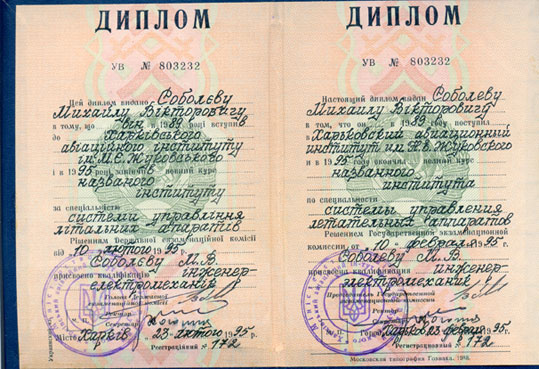 ДИПЛОМ
УВ № 803232
Цей диплом видано Соболєву
Михайлу Вікторовичу
в тому, що він в 1989 році вступив
до Харківського
авіаційного інституту
ім. М.Є. Жуковського
і в 1995 році закінчив повний курс
названого
інституту
за спеціальністю
системи управління
літальних апаратів
Рішенням Державної екзаменаційної комісії
від „10” лютого 1995 р.
Соболєву М.В.
присвоєно кваліфікацію інженер-
електромеханік
Голова Державної
екзаменаційної комісії
Ректор
Секретар
Місто Харків 23 лютого 1995
Реєстраційний № 172
ДИПЛОМ
УВ № 803232
Настоящий диплом выдан Соболеву
Михаилу Викторовичу
в том, что он в 1989 году поступил
в Харьковский авиационный
институт им. Н.Е. Жуковского
и в 1995 году окончил полный курс
названного
института
по специальности
системы управления
летательных аппаратов
Решением Государственной экзаменационной
комиссии от „10” февраля 1995 г.
Соболеву М.В.
присвоена квалификация инженер-
электромеханик
Председатель Государственной
экзаменационной комиссии
Ректор
Город Харьков 23 февраля 1995 г.
Регистрационный № 172
Московская типография Гознака. 1988.